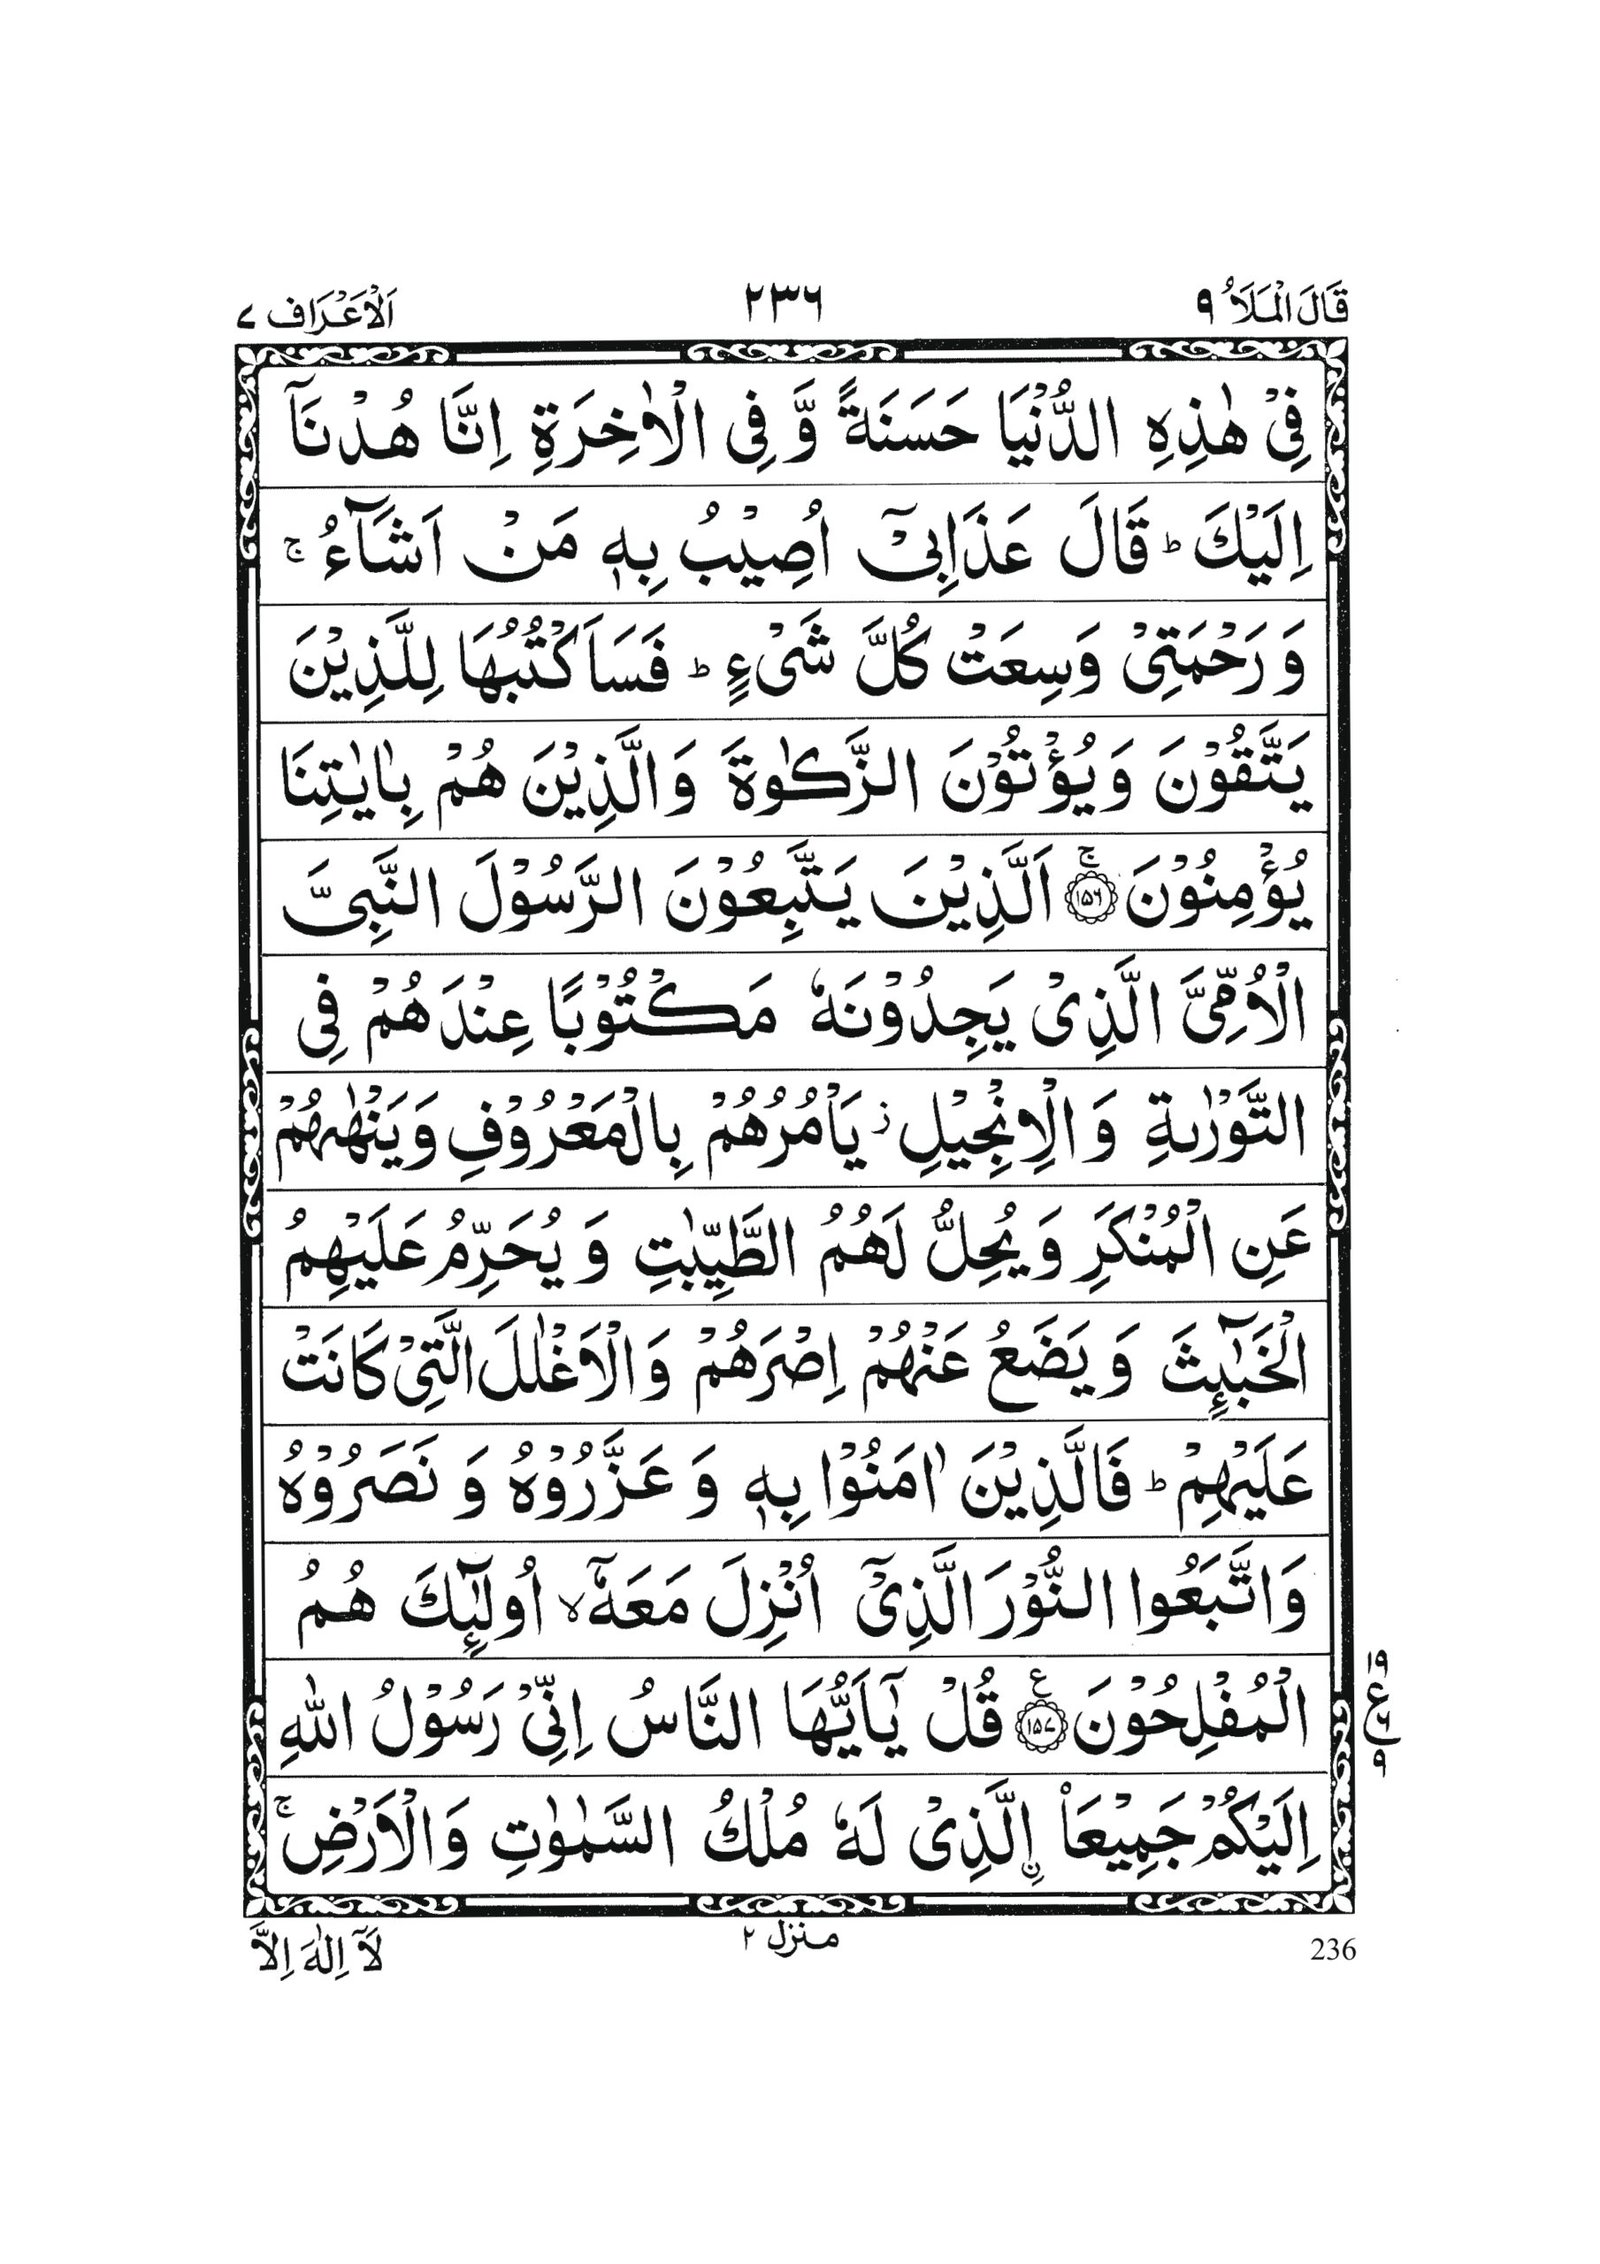 قَالَ الْمَلَاُ ٩ ٢٣٦ اَلْاَعْرَاف ٧
فِىْ هٰذِهِ الدُّنْيَا حَسَنَةً وَّ فِى الْاٰخِرَةِ اِنَّا هُدْنَاۤ
اِلَيْكَ ؕ قَالَ عَذَابِىْۤ اُصِيْبُ بِهٖ مَنْ اَشَآءُ ۚ
وَ رَحْمَتِىْ وَسِعَتْ كُلَّ شَىْءٍ ؕ فَسَاَكْتُبُهَا لِلَّذِيْنَ
يَتَّقُوْنَ وَ يُؤْتُوْنَ الزَّكٰوةَ وَالَّذِيْنَ هُمْ بِاٰيٰتِنَا
يُؤْمِنُوْنَ ۚ ﴿١٥٦﴾ اَلَّذِيْنَ يَتَّبِعُوْنَ الرَّسُوْلَ النَّبِىَّ
الْاُمِّىَّ الَّذِىْ يَجِدُوْنَهٗ مَكْتُوْبًا عِنْدَهُمْ فِى
التَّوْرٰىةِ وَ الْاِنْجِيْلِ ز يَاْمُرُهُمْ بِالْمَعْرُوْفِ وَ يَنْهٰىهُمْ
عَنِ الْمُنْكَرِ وَ يُحِلُّ لَهُمُ الطَّيِّبٰتِ وَ يُحَرِّمُ عَلَيْهِمُ
الْخَبٰٓئِثَ وَ يَضَعُ عَنْهُمْ اِصْرَهُمْ وَ الْاَغْلٰلَ الَّتِىْ كَانَتْ
عَلَيْهِمْ ؕ فَالَّذِيْنَ اٰمَنُوْا بِهٖ وَ عَزَّرُوْهُ وَ نَصَرُوْهُ
وَ اتَّبَعُوا النُّوْرَ الَّذِىْۤ اُنْزِلَ مَعَهٗۤ ۙ اُولٰٓئِكَ هُمُ
الْمُفْلِحُوْنَ ﴿١٥٧﴾ ع قُلْ يٰۤاَيُّهَا النَّاسُ اِنِّىْ رَسُوْلُ اللّٰهِ
١٩ ع ٦ ٩
اِلَيْكُمْ جَمِيْعَاْ ۨ الَّذِىْ لَهٗ مُلْكُ السَّمٰوٰتِ وَ الْاَرْضِ ۚ
منزل ٢
لَاۤ اِلٰهَ اِلَّا
236